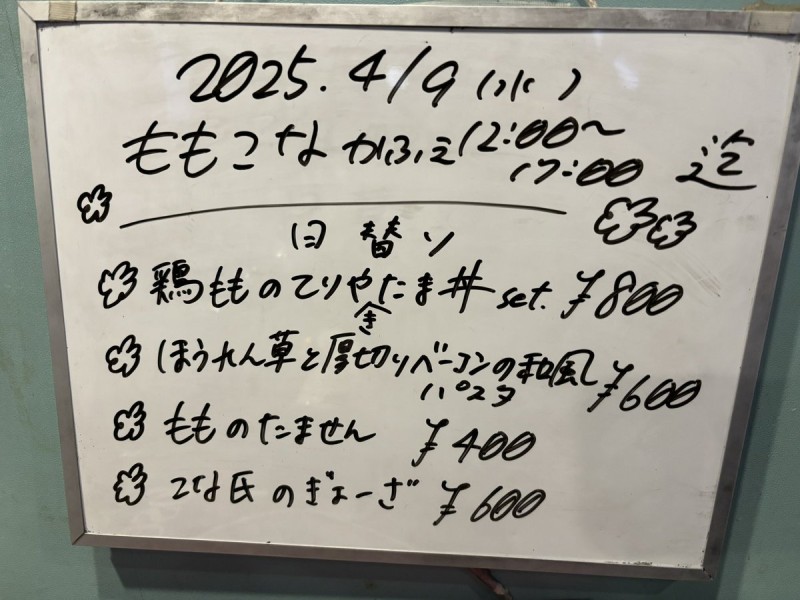 2025. 4/9 (水)
ももこなかふぇ 12:00〜
17:00 迄
日替り
鶏もものてりやきたま丼 set. ¥800
ほうれん草と厚切りベーコンの和風
パスタ ¥600
もものたません ¥400
こな氏のぎょーざ ¥600